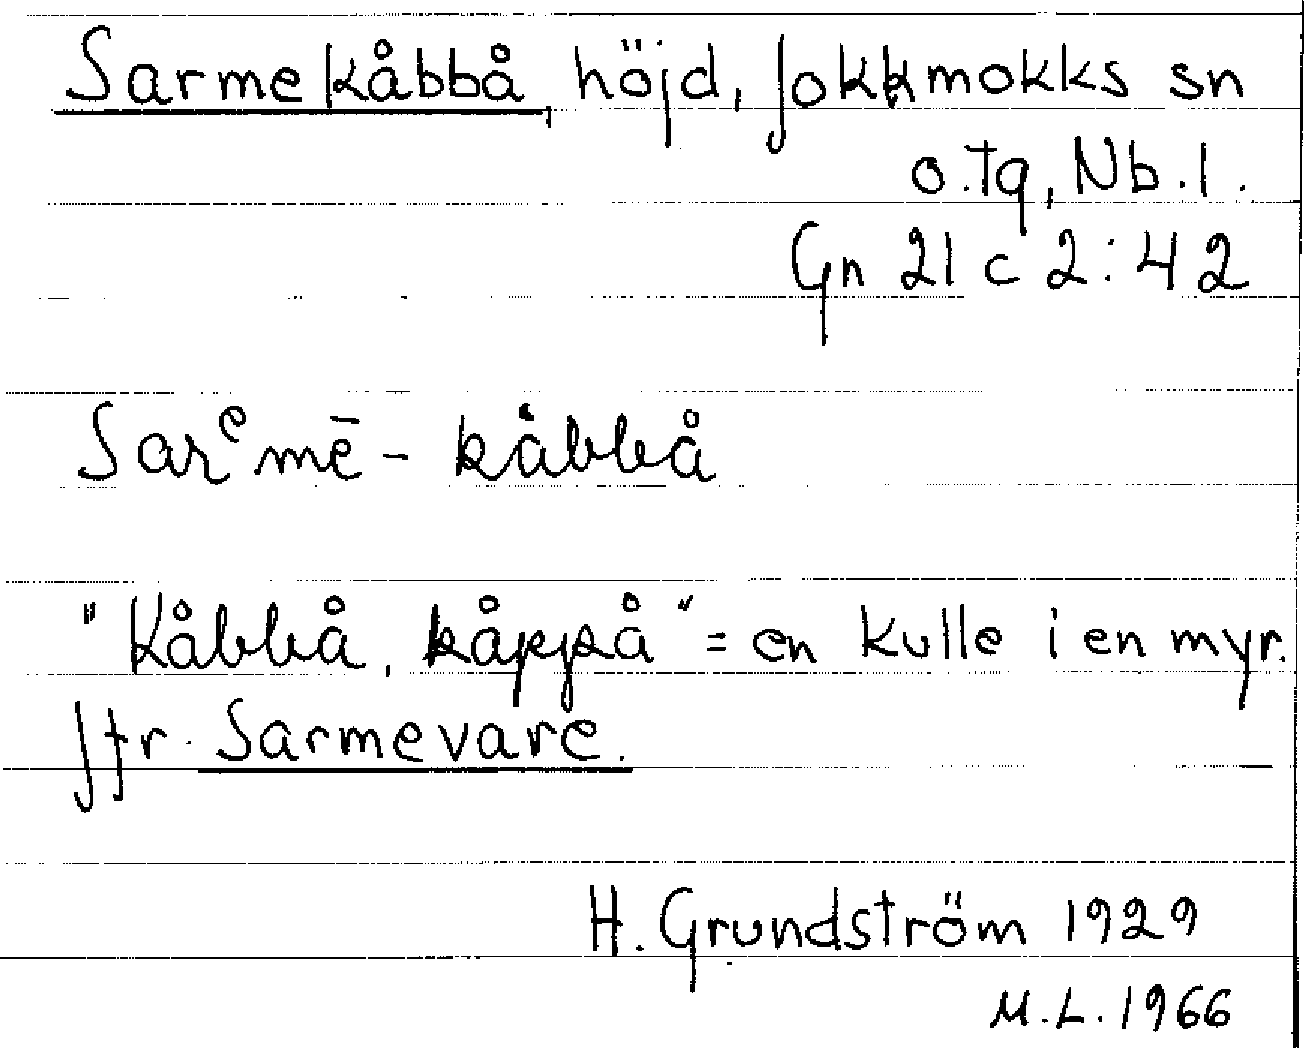 Sarme|kåbbå, höjd, Jokkmokks sn
o. tg, Nb. l.
Gn 21 c 2:42
Sarᵉmē - kåbbå
"Kåbbå, kåppå" = en kulle i en myr.
Jfr. Sarmevare.
H. Grundström 1929
M.L. 1966